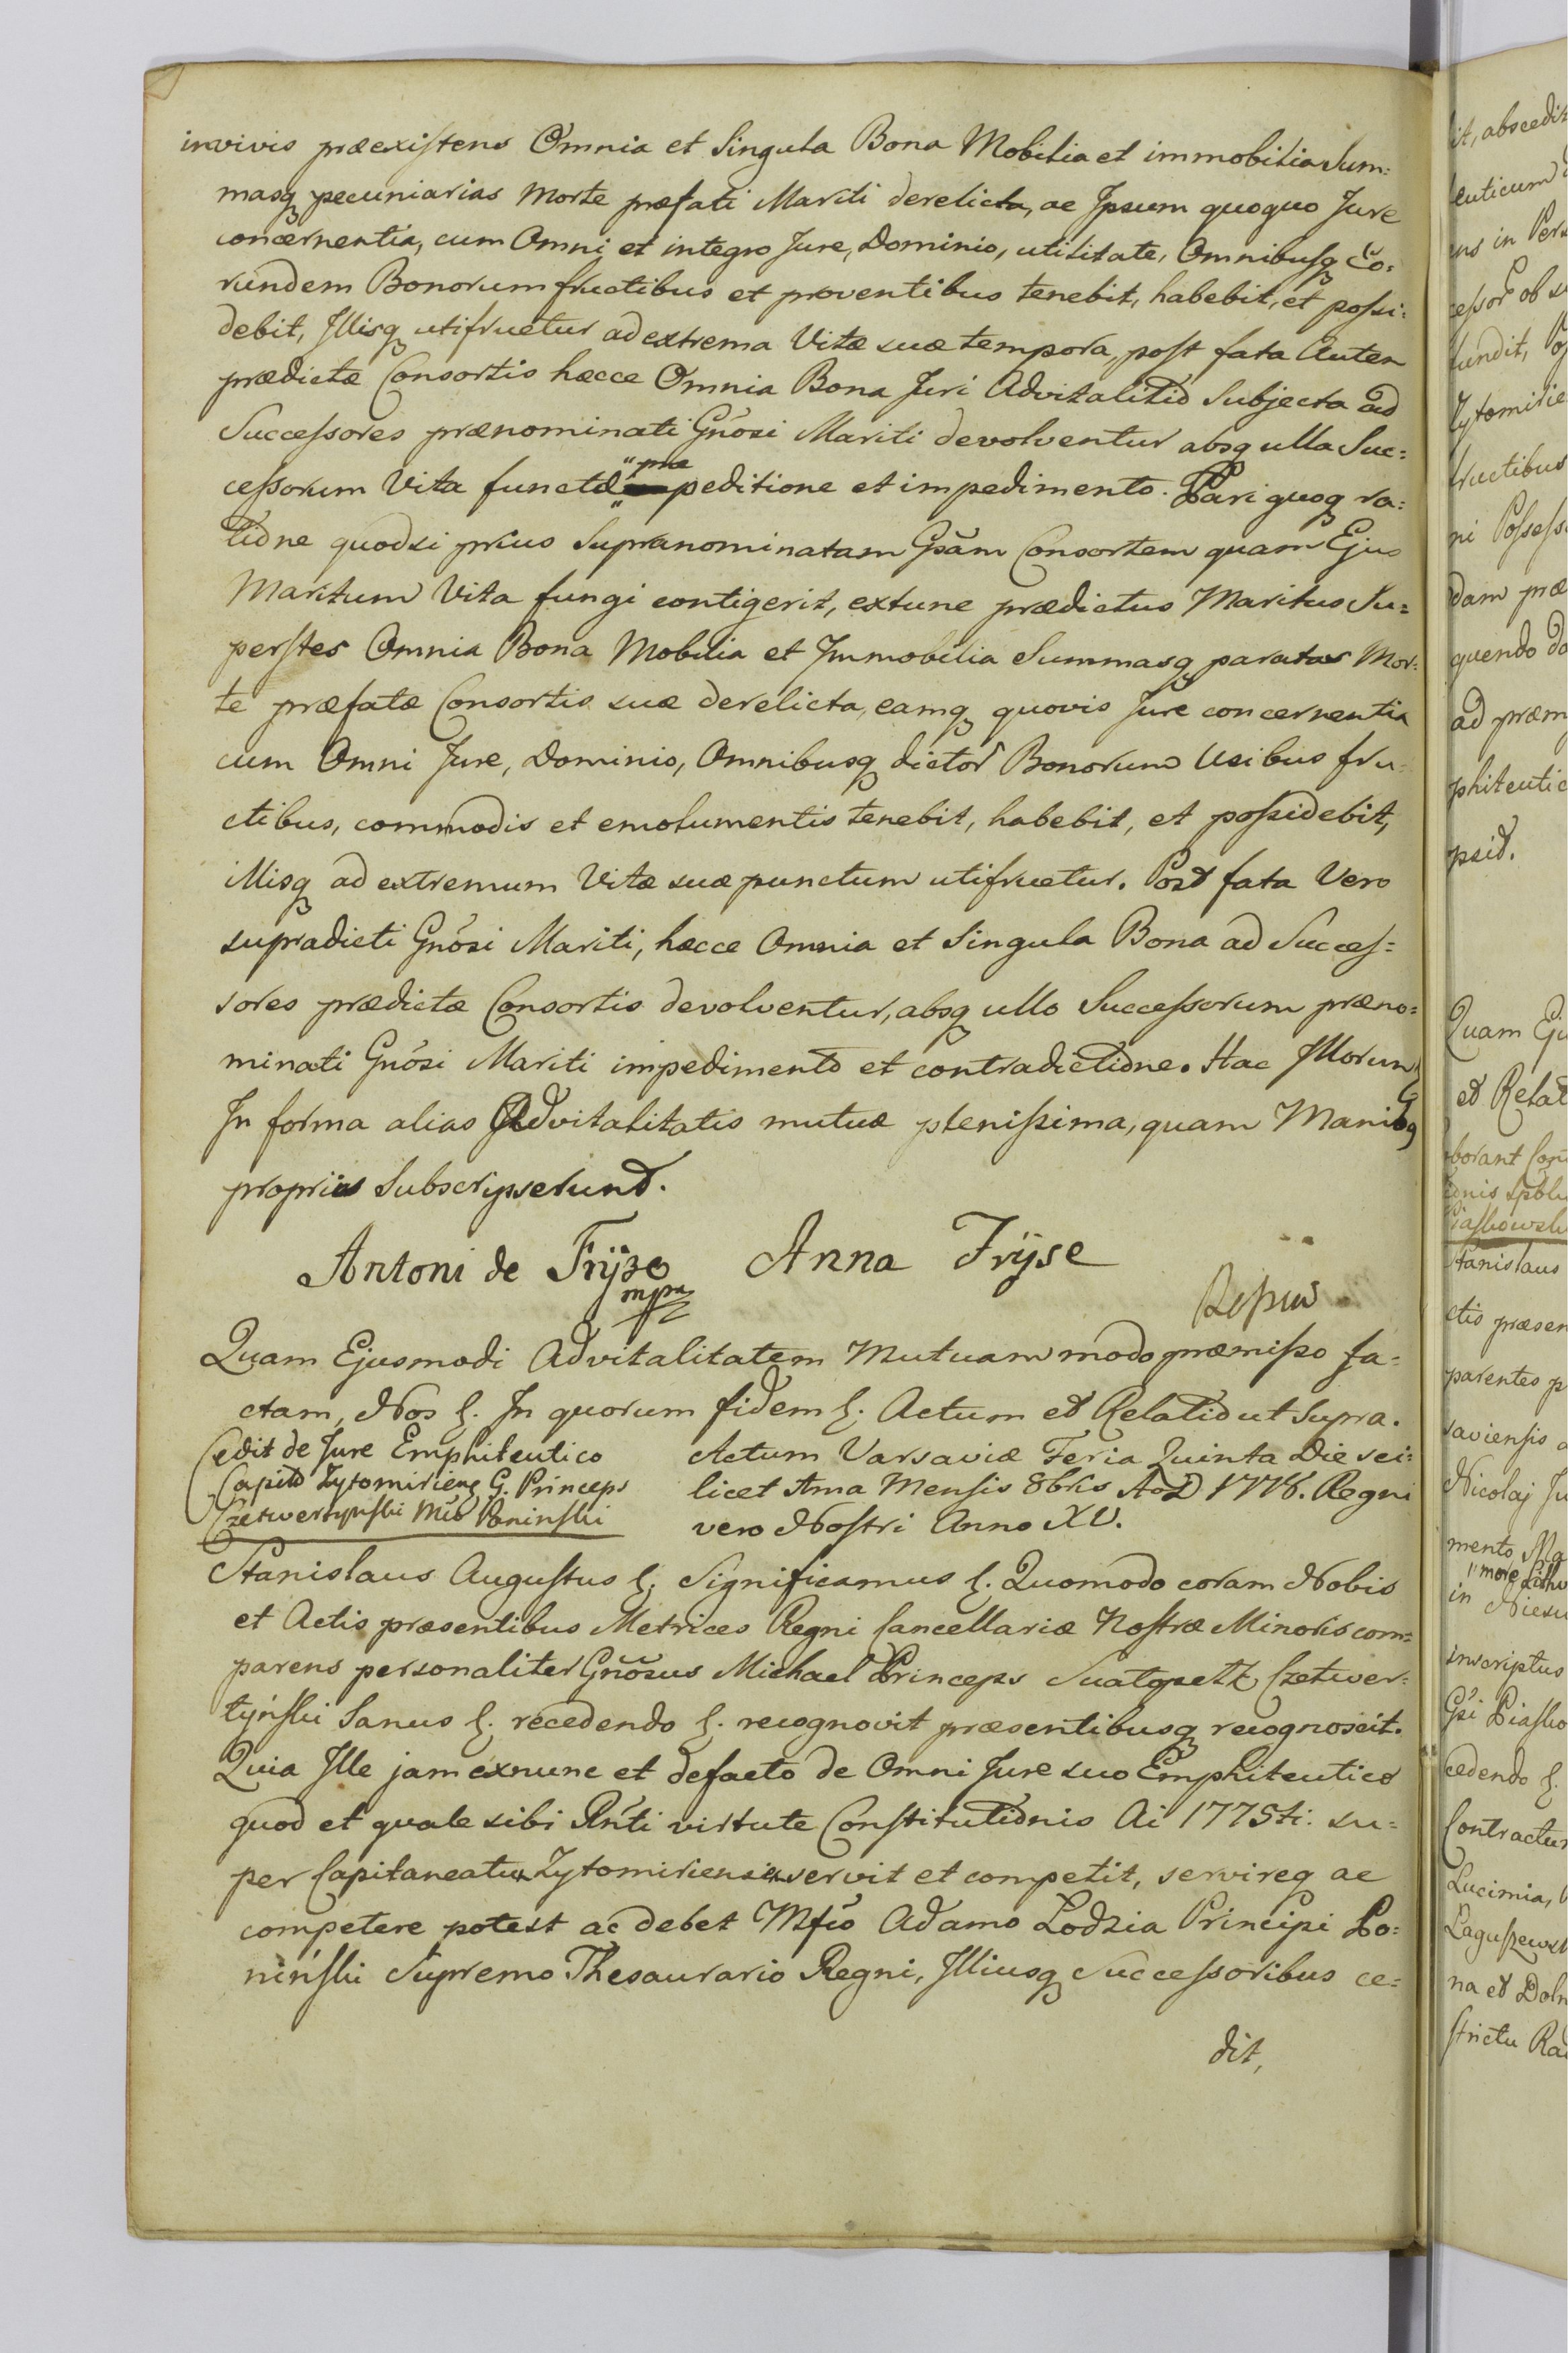 invivis præexistens Omnia et Singula Bona Mobilia et immobilia Sum=
masq pecuniarias Morte præfati Mariti derelicta, ac Ipsum quoquo Jure
concernentia, cum Omni et integro Jure, Dominio, utilitate, Omnibusq Eo=
rundem Bonorum fructibus et proventibus tenebit, habebit, et possi=
debit, Illisq utifruetur ad extrema Vitæ suæ tempora, post fata Autem
prædictæ Consortis hæcce Omnia Bona Juri Advitalitio Subjecta ad
Successores prænominati Gnósi Mariti devolventur absq ulla Suc=
cessorum Vita functæ præpeditione et impedimento. Pari quoq ra=
tione quodsi prius Supranominatam Gsãm Consortem quam Ejus
Maritum Vita fungi contigerit, extunc prædictus Maritus Su=
perstes Omnia Bona Mobilia et Immobilia Summasq paratas Mor=
te præfatæ Consortis suæ derelicta, eamq quovis Jure concernentia
cum Omni Jure, Dominio, Omnibusq dictor Bonorum Usibus fru=
ctibus, commodis et emolumentis tenebit, habebit, et possidebit,
illisq ad extremum Vitæ suæ punctum utifruetur. Post fata Vero
supradicti Gnósi Mariti, hæcce Omnia et Singula Bona ad Succes=
sores prædictæ Consortis devolventur, absq ullo Successorum præno=
minati Gnósi Mariti impedimento et contradictione. Hac Illorum
In forma alias Advitalitatis mutuæ plenissima, quam Manibq
propriis Subscripserunt.
Antoni de Frÿze Anna Frÿse
mpra
Quam Ejusmodi Advitalitatem Mutuam modo præmisso fa=
ctam, Nos &. In quorum fidem &. Actum et Relatio ut Supra.
Cedit de Jure Emphiteutico
Capito Zytomiriens G. Princeps
Czetwertynski Mco Poninski
Actum Varsaviæ Feria Quinta Die sci=
licet Ama Mensis 8bris AoD 1778. Regni
vero Nostri Anno XV.
Stanislaus Augustus &. Significamus &. Quomodo coram Nobis
et Actis præsentibus Metrices Regni Cancellariæ Nostræ Minoris com=
parens personaliter Gnõsus Michael Princeps Suatopelk Czetwer=
tyński Sanus &. recedendo &. recognovit præsentibusq recognoscit.
Quia Ille jam exnunc et defacto de Omni Jure suo Emphiteutico
quod et quale sibi Rńti virtute Constitutionis Ai 1775ti. su=
per Capitaneatu Zytomiriensi servit et competit, servireq ac
competere potest ac debet Mfco Adamo Lodzia Principi Po=
niński Supremo Thesaurario Regni, Illiusq Successoribus ce=
dit,